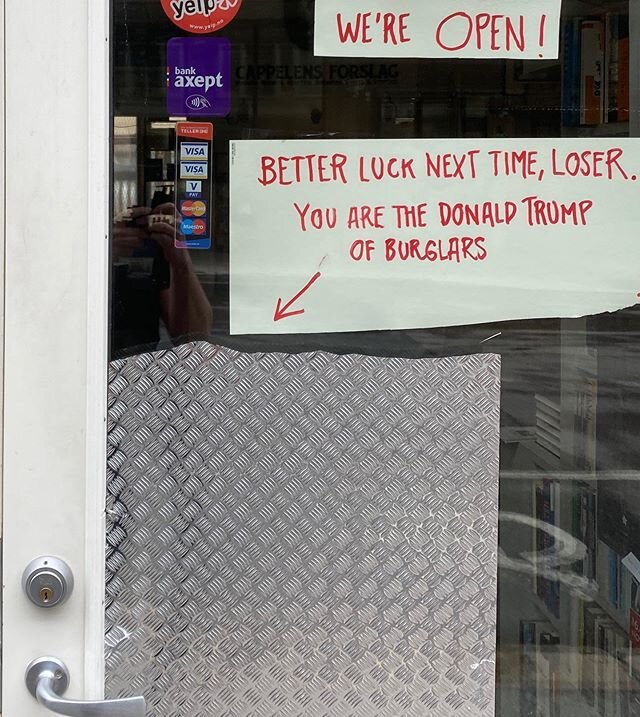 yelp
www.yelp.no
WE'RE OPEN!
bank
axept
CAPPELENS FORSLAG
TELLER
VISA
VISA
V
PAY
MasterCard
Maestro
BETTER LUCK NEXT TIME, LOSER.
YOU ARE THE DONALD TRUMP
OF BURGLARS